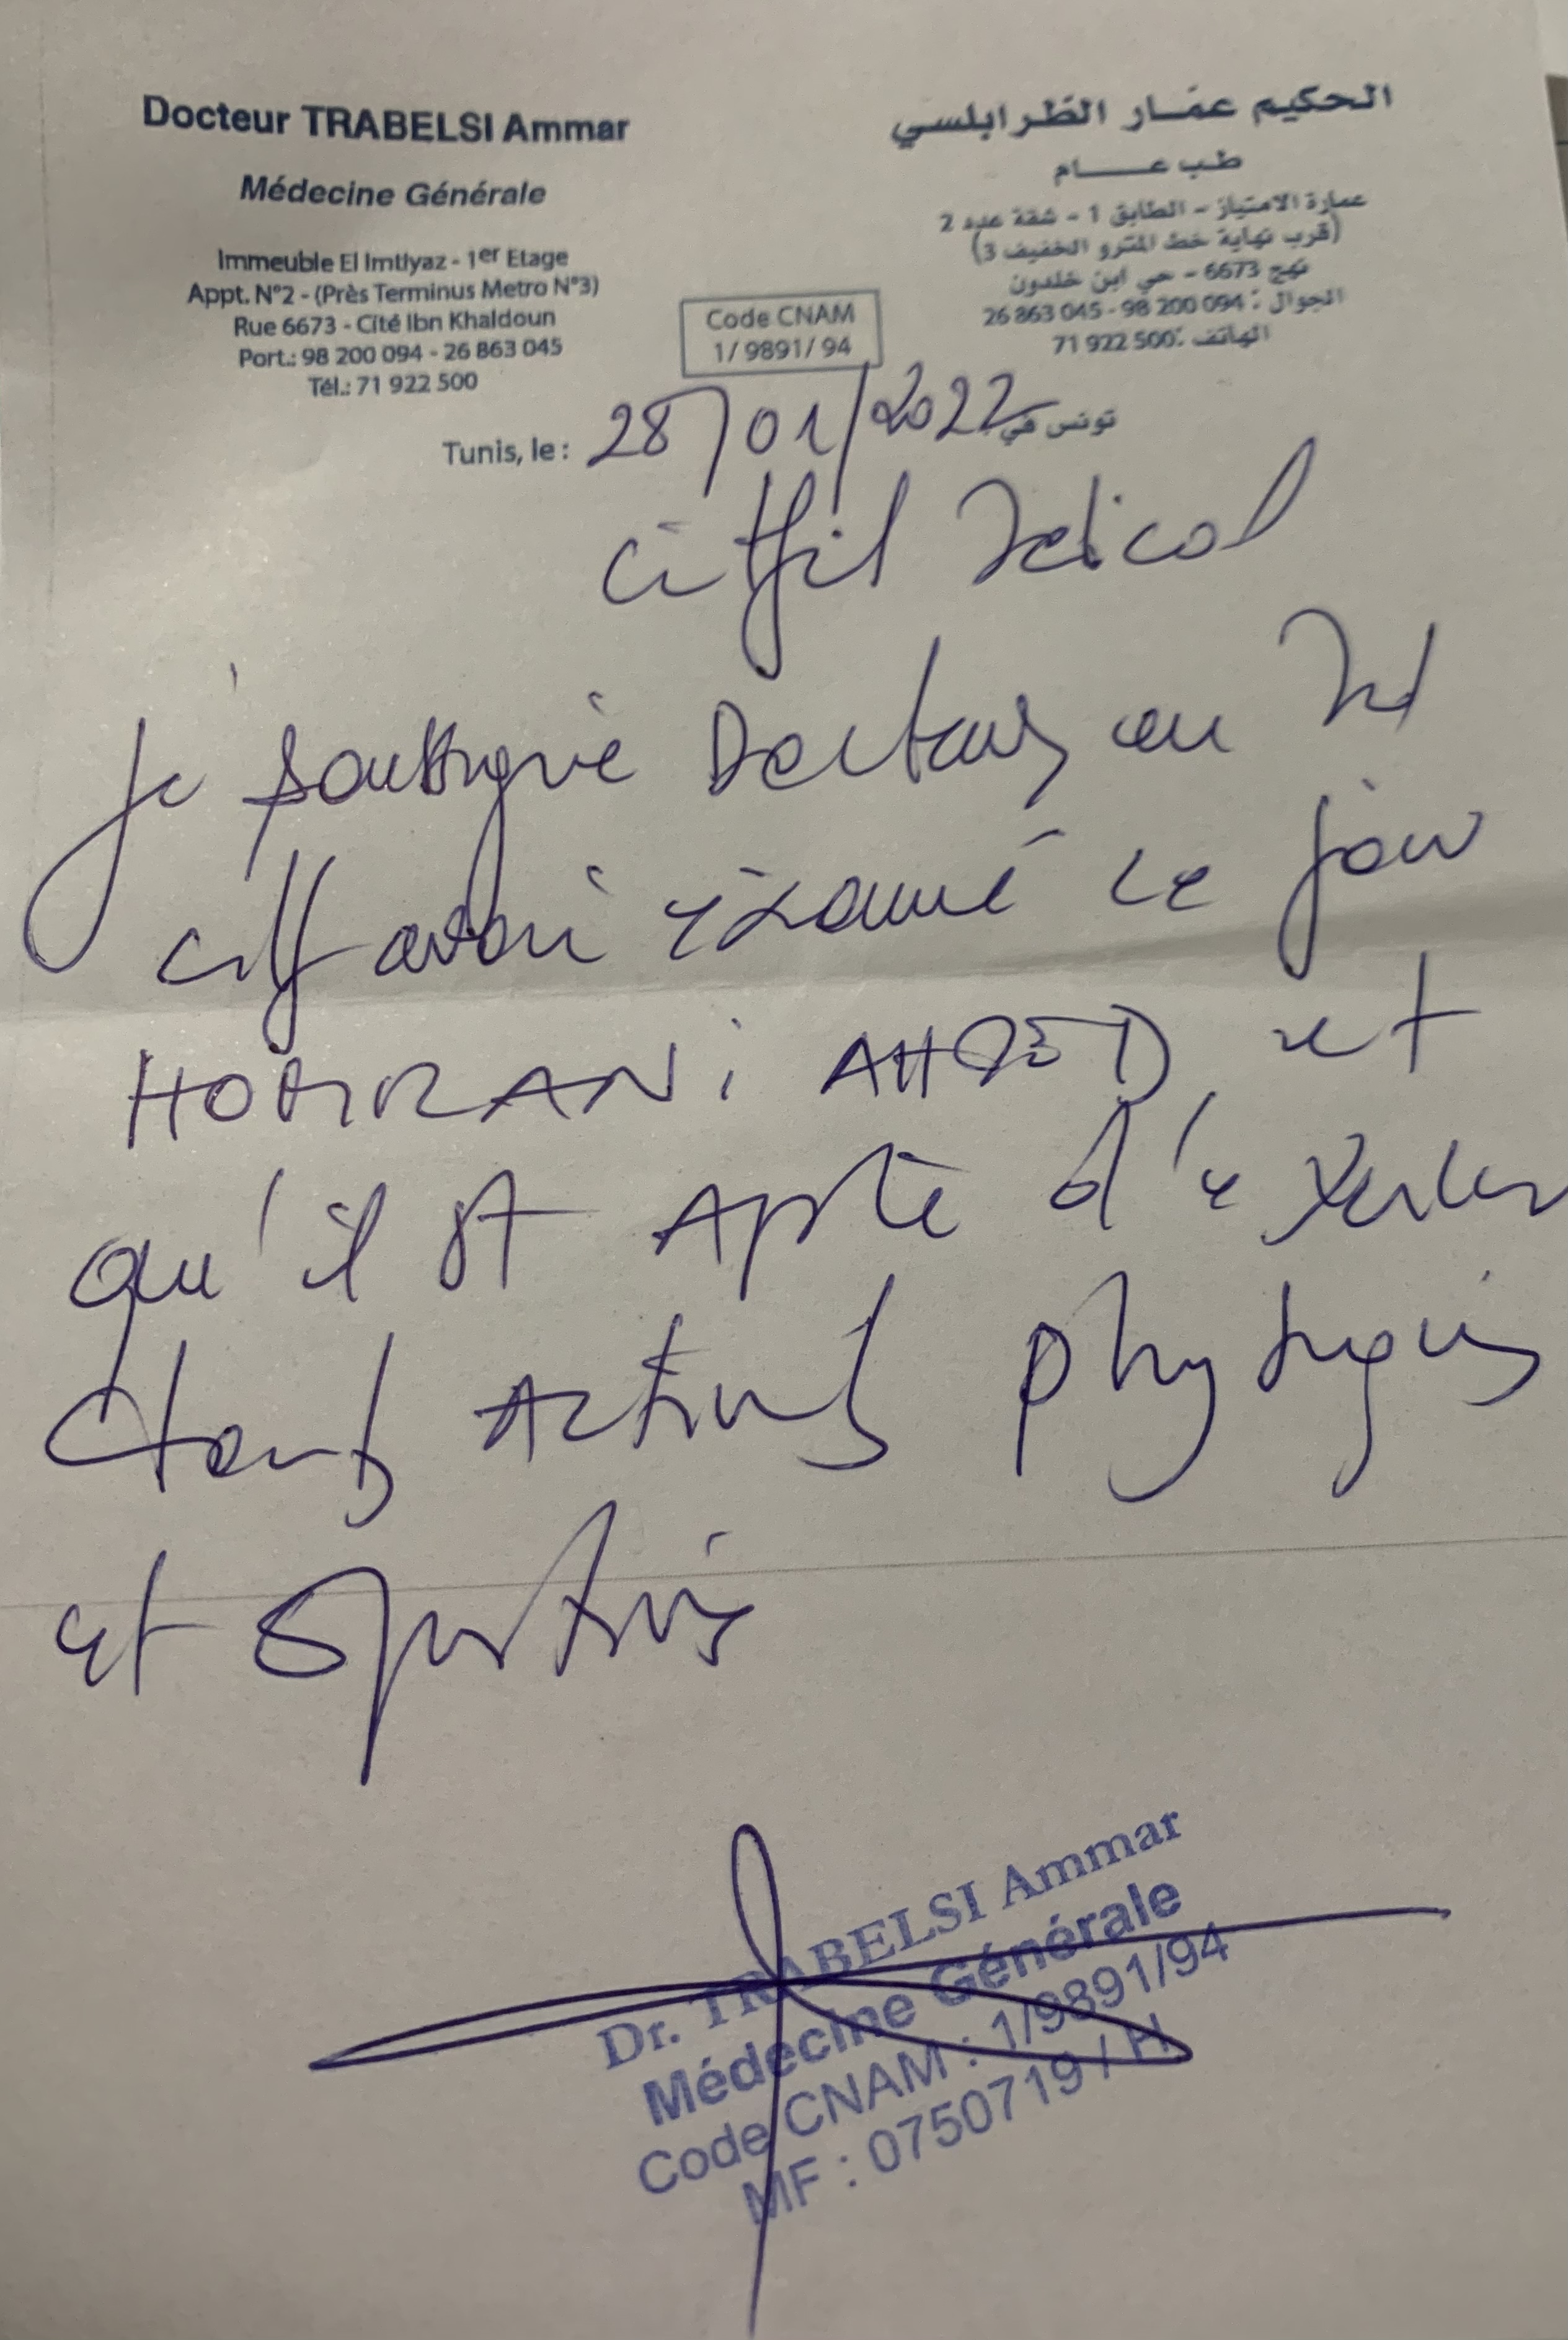 Docteur TRABELSI Ammar
Médecine Générale
Immeuble El Imtiyaz - 1er Etage
Appt. N°2 - (Près Terminus Metro N°3)
Rue 6673 - Cité Ibn Khaldoun
Port.: 98 200 094 - 26 863 045
Tél.: 71 922 500
الحكيم عمّار الطّرابلسي
طب عــــام
عمارة الامتياز - الطابق 1 - شقة عدد 2
(قرب نهاية خط المترو الخفيف 3)
نهج 6673 - حي ابن خلدون
الجوال : 094 200 98 - 045 863 26
الهاتف : 500 922 71
Code CNAM
1/ 9891/ 94
Tunis, le : 28/01/2022 تونس في
Médical
Je soussigné Docteur en
avoir examiné ce jour
HOMRANI AHMED et
qu'il est Apte d'exercer
physiques
et sportives
Dr. TRABELSI Ammar
Médecine Générale
Code CNAM : 1/9891/94
MF : 0750719 / H